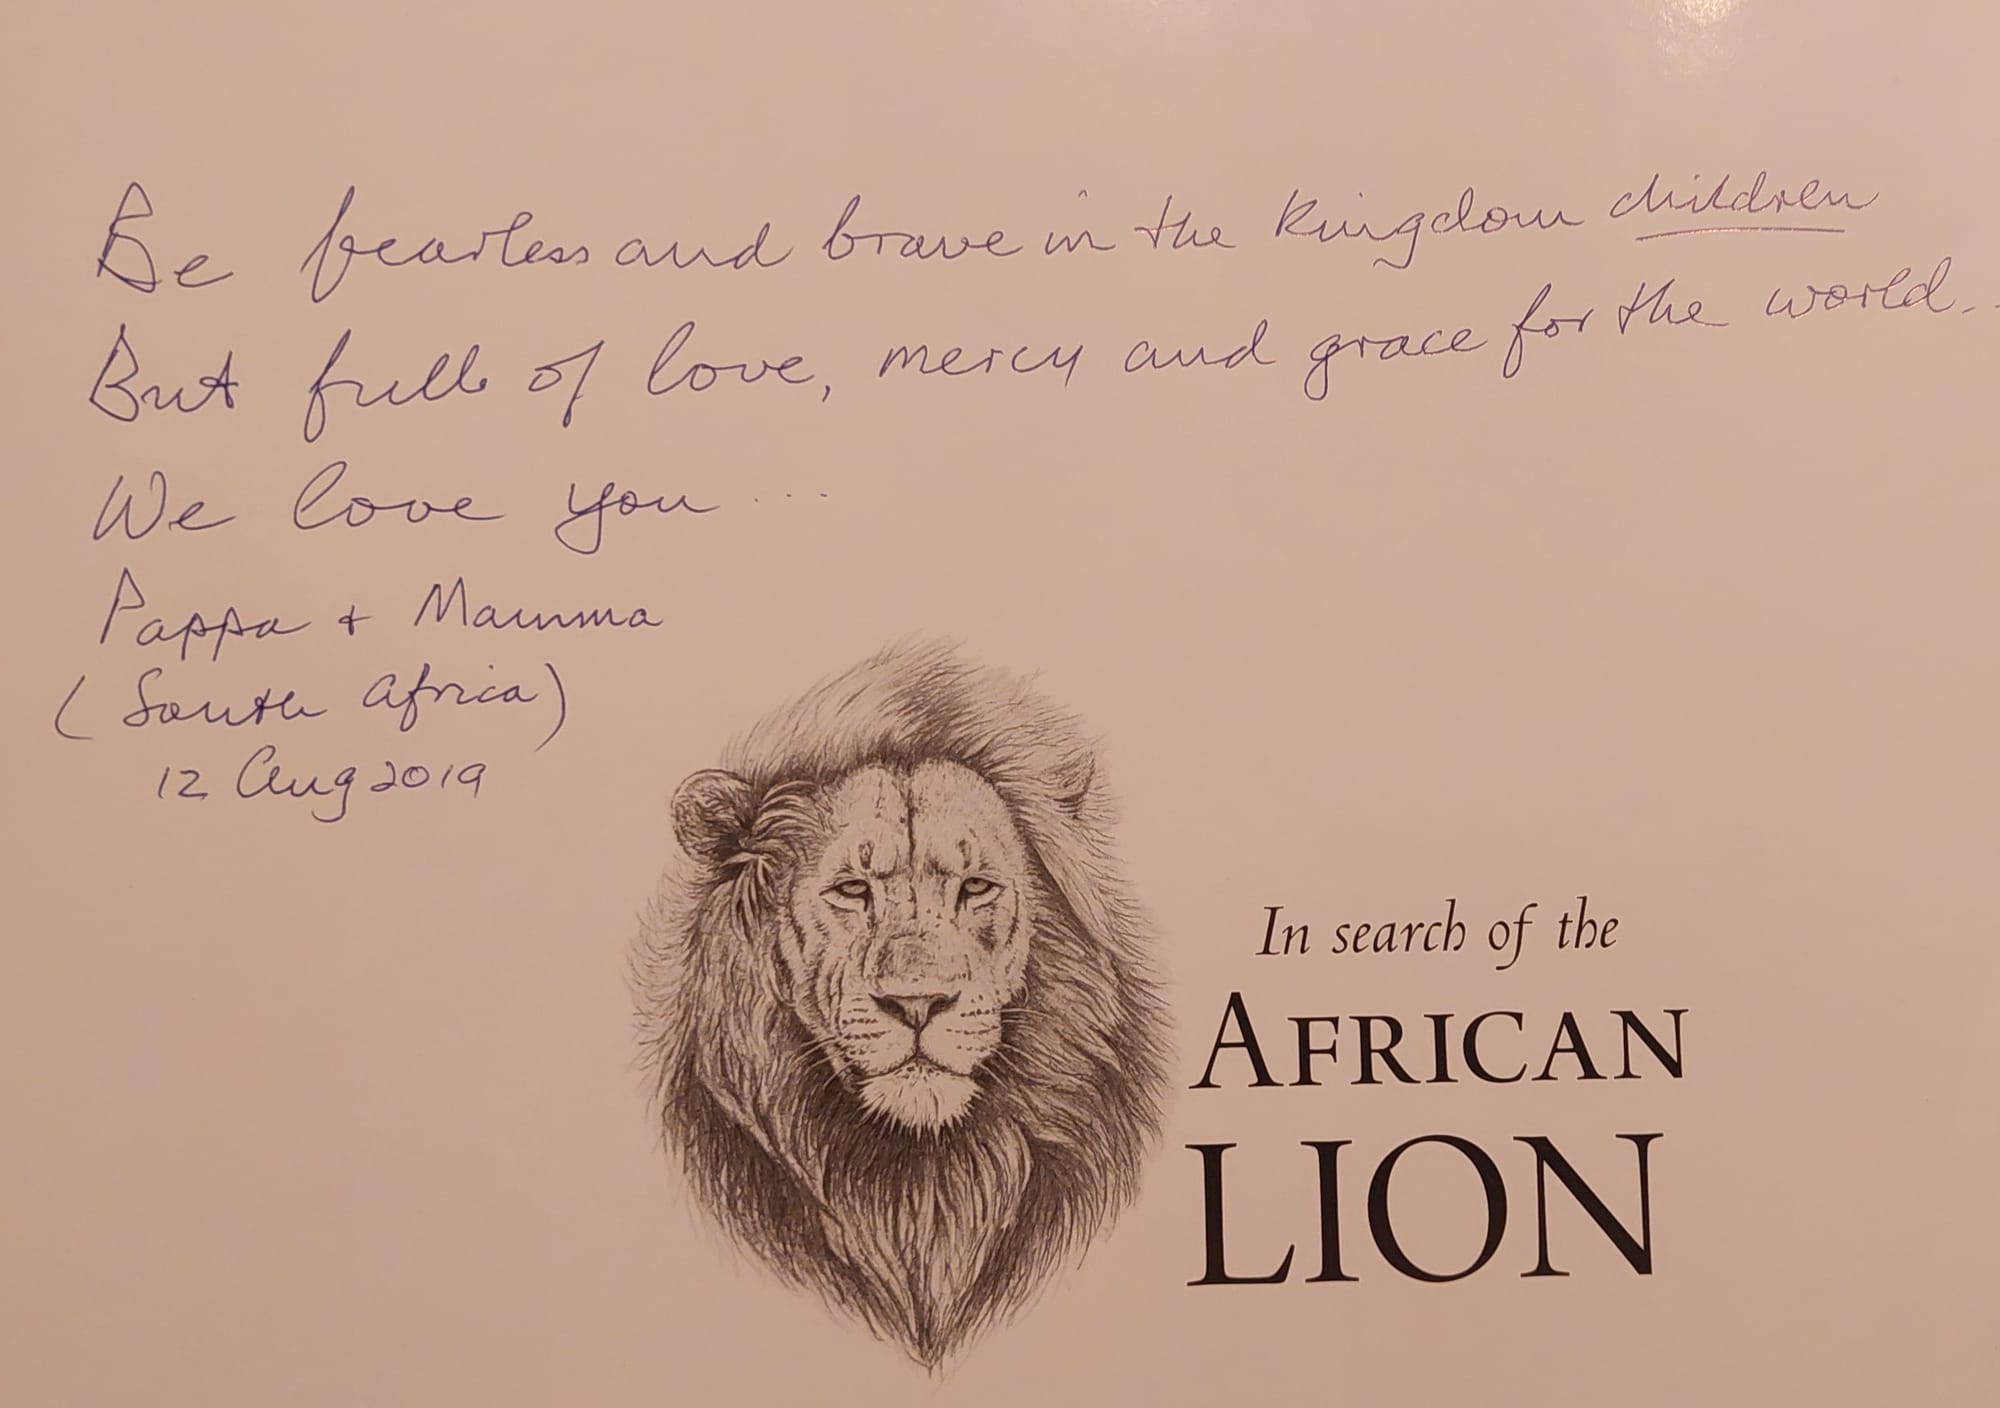 Be fearless and brave in the Kingdom children
But full of love, mercy and grace for the world..
We love you ...
Pappa + Mamma
(South Africa)
12 Aug 2019
In search of the
AFRICAN
LION